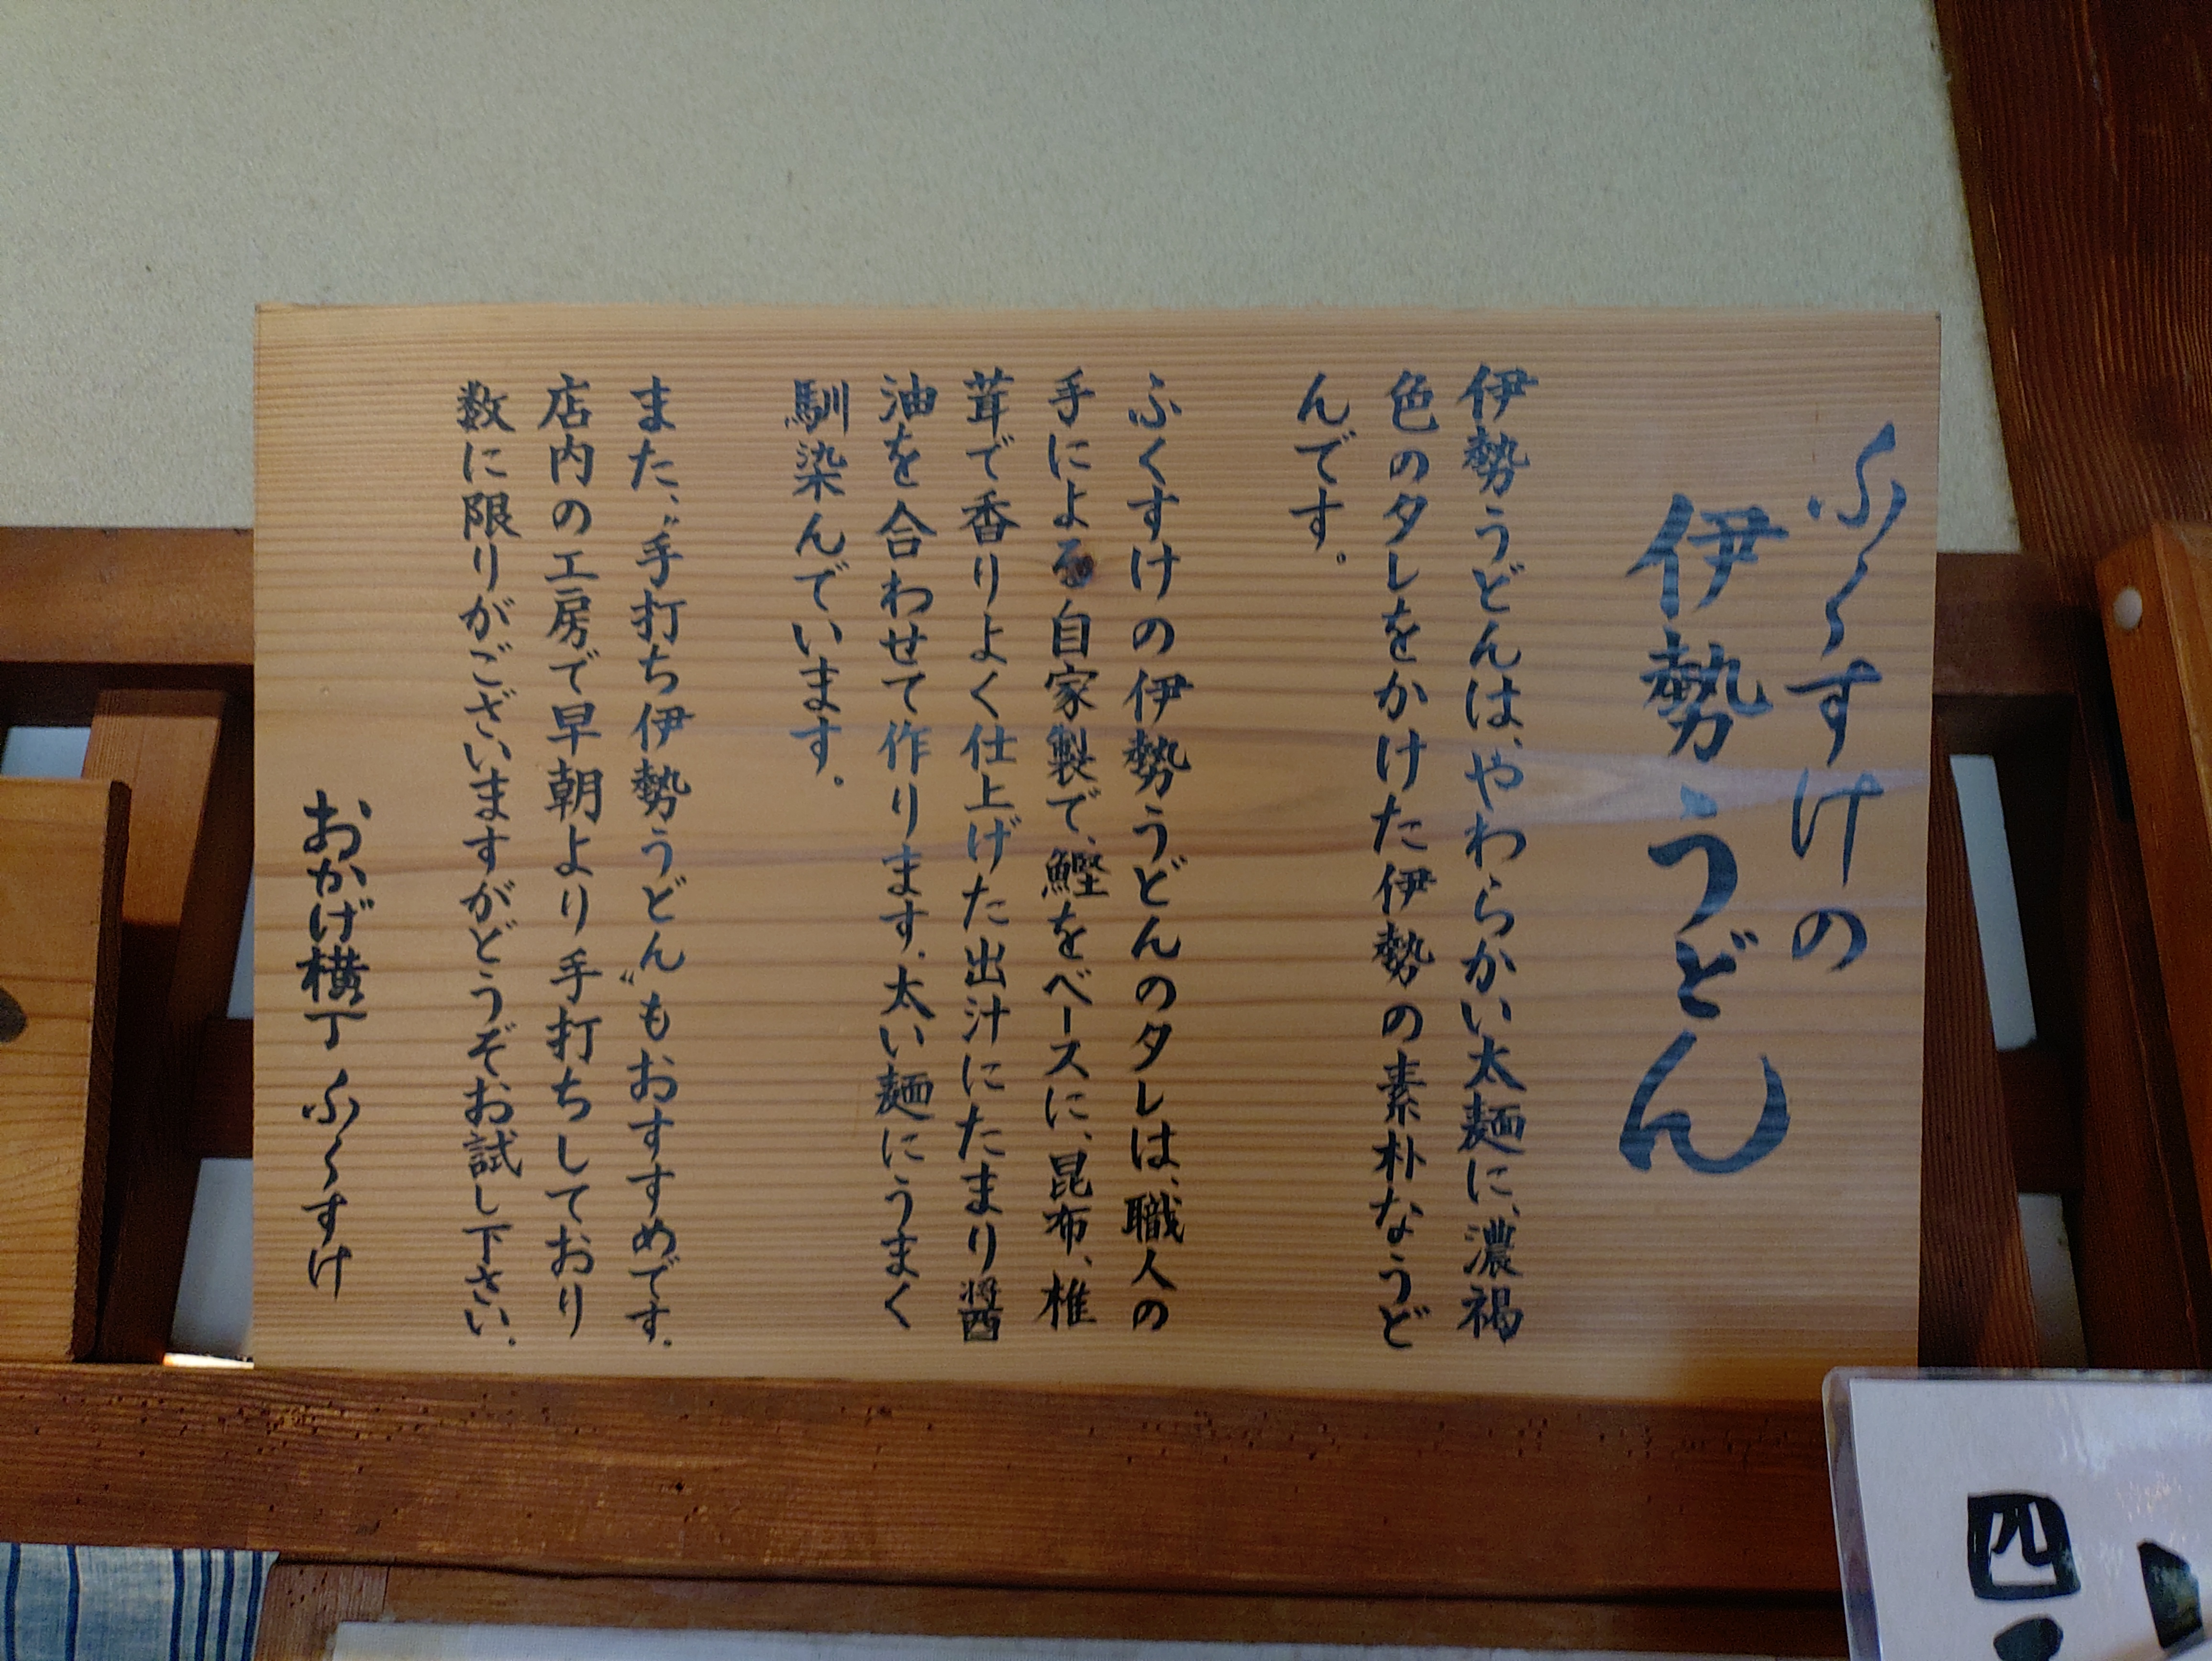 ふくすけの
伊勢うどん
伊勢うどんは、やわらかい太麺に、濃褐
色のタレをかけた伊勢の素朴なうど
んです。
ふくすけの伊勢うどんのタレは、職人の
手による自家製で、鰹をベースに、昆布、椎
茸で香りよく仕上げた出汁にたまり醤
油を合わせて作ります。太い麺にうまく
馴染んでいます。
また、〝手打ち伊勢うどん〟もおすすめです。
店内の工房で早朝より手打ちしており
数に限りがございますがどうぞお試し下さい。
おかげ横丁 ふくすけ
四